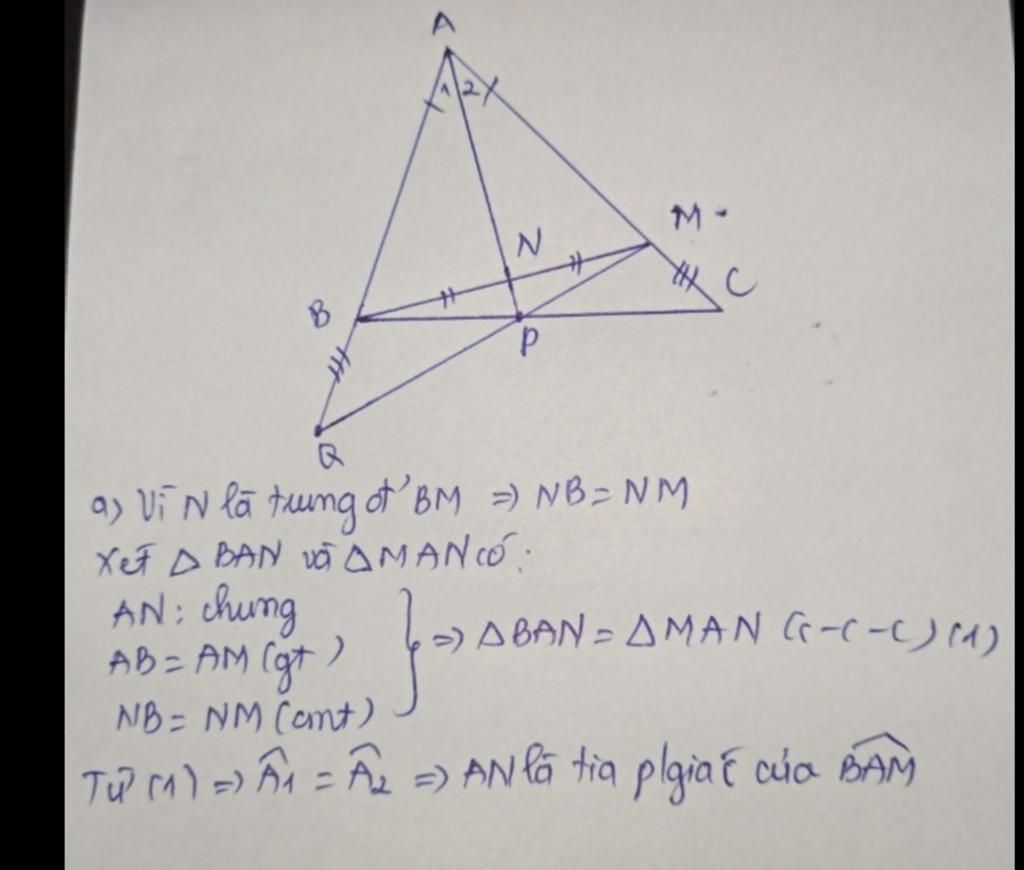 A
1 2
M
N
C
B
P
Q
a) Vì N là trung đ' BM => NB = NM
Xét Δ BAN và Δ MAN có:
AN: chung
AB = AM (gt)
NB = NM (cmt)
=> Δ BAN = Δ MAN (c-c-c) (1)
Từ (1) => Â1 = Â2 => AN là tia p/giác của BAM